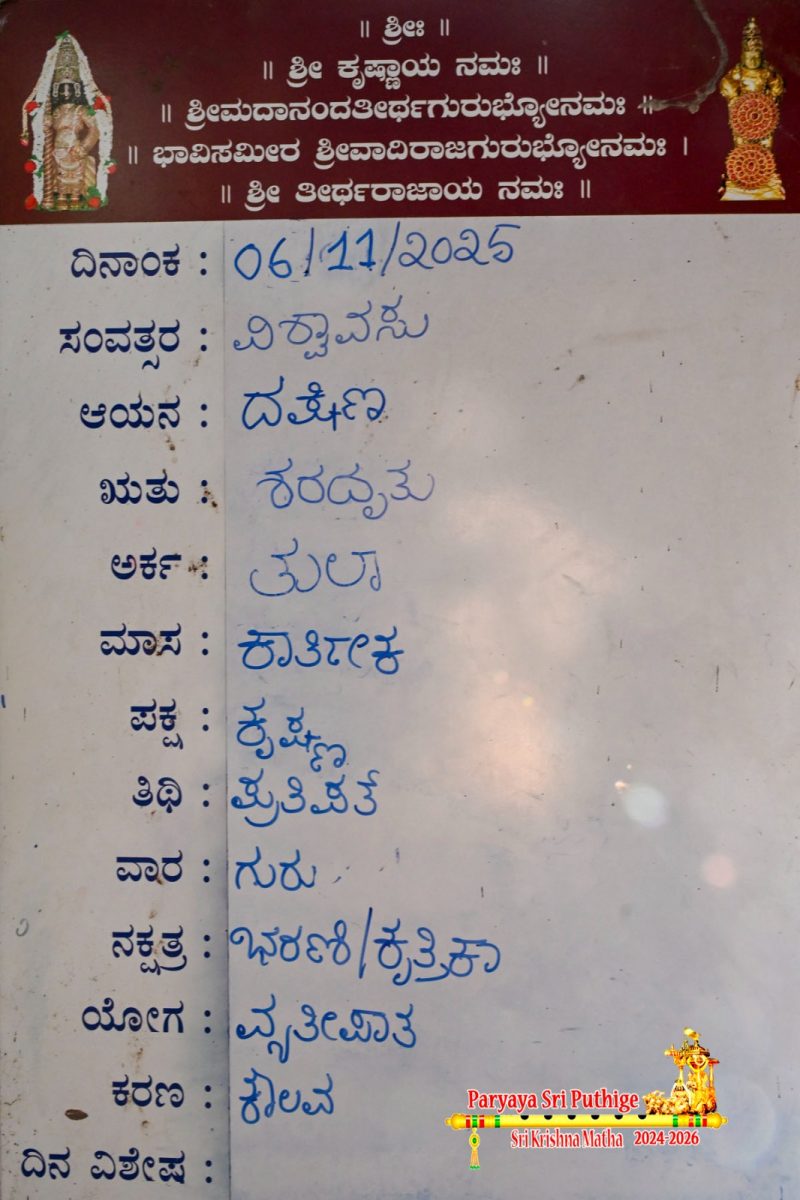 ॥ ಶ್ರೀಃ ॥
॥ ಶ್ರೀ ಕೃಷ್ಣಾಯ ನಮಃ ॥
॥ ಶ್ರೀಮದಾನಂದತೀರ್ಥಗುರುಭ್ಯೋನಮಃ ॥
॥ ಭಾವಿಸಮೀರ ಶ್ರೀವಾದಿರಾಜಗುರುಭ್ಯೋನಮಃ ।
॥ ಶ್ರೀ ತೀರ್ಥರಾಜಾಯ ನಮಃ ॥
ದಿನಾಂಕ : 06/11/2025
ಸಂವತ್ಸರ : ವಿಶ್ವಾವಸು
ಆಯನ : ದಕ್ಷಿಣ
ಋತು : ಶರದೃತು
ಅರ್ಕ : ತುಲಾ
ಮಾಸ : ಕಾರ್ತೀಕ
ಪಕ್ಷ : ಕೃಷ್ಣ
ತಿಥಿ : ಪ್ರತಿಪತೆ
ವಾರ : ಗುರು
ನಕ್ಷತ್ರ : ಭರಣಿ/ಕೃತ್ತಿಕಾ
ಯೋಗ : ವ್ಯತೀಪಾತ
ಕರಣ : ಕೌಲವ
ದಿನ ವಿಶೇಷ :
Paryaya Sri Puthige
Sri Krishna Matha 2024-2026